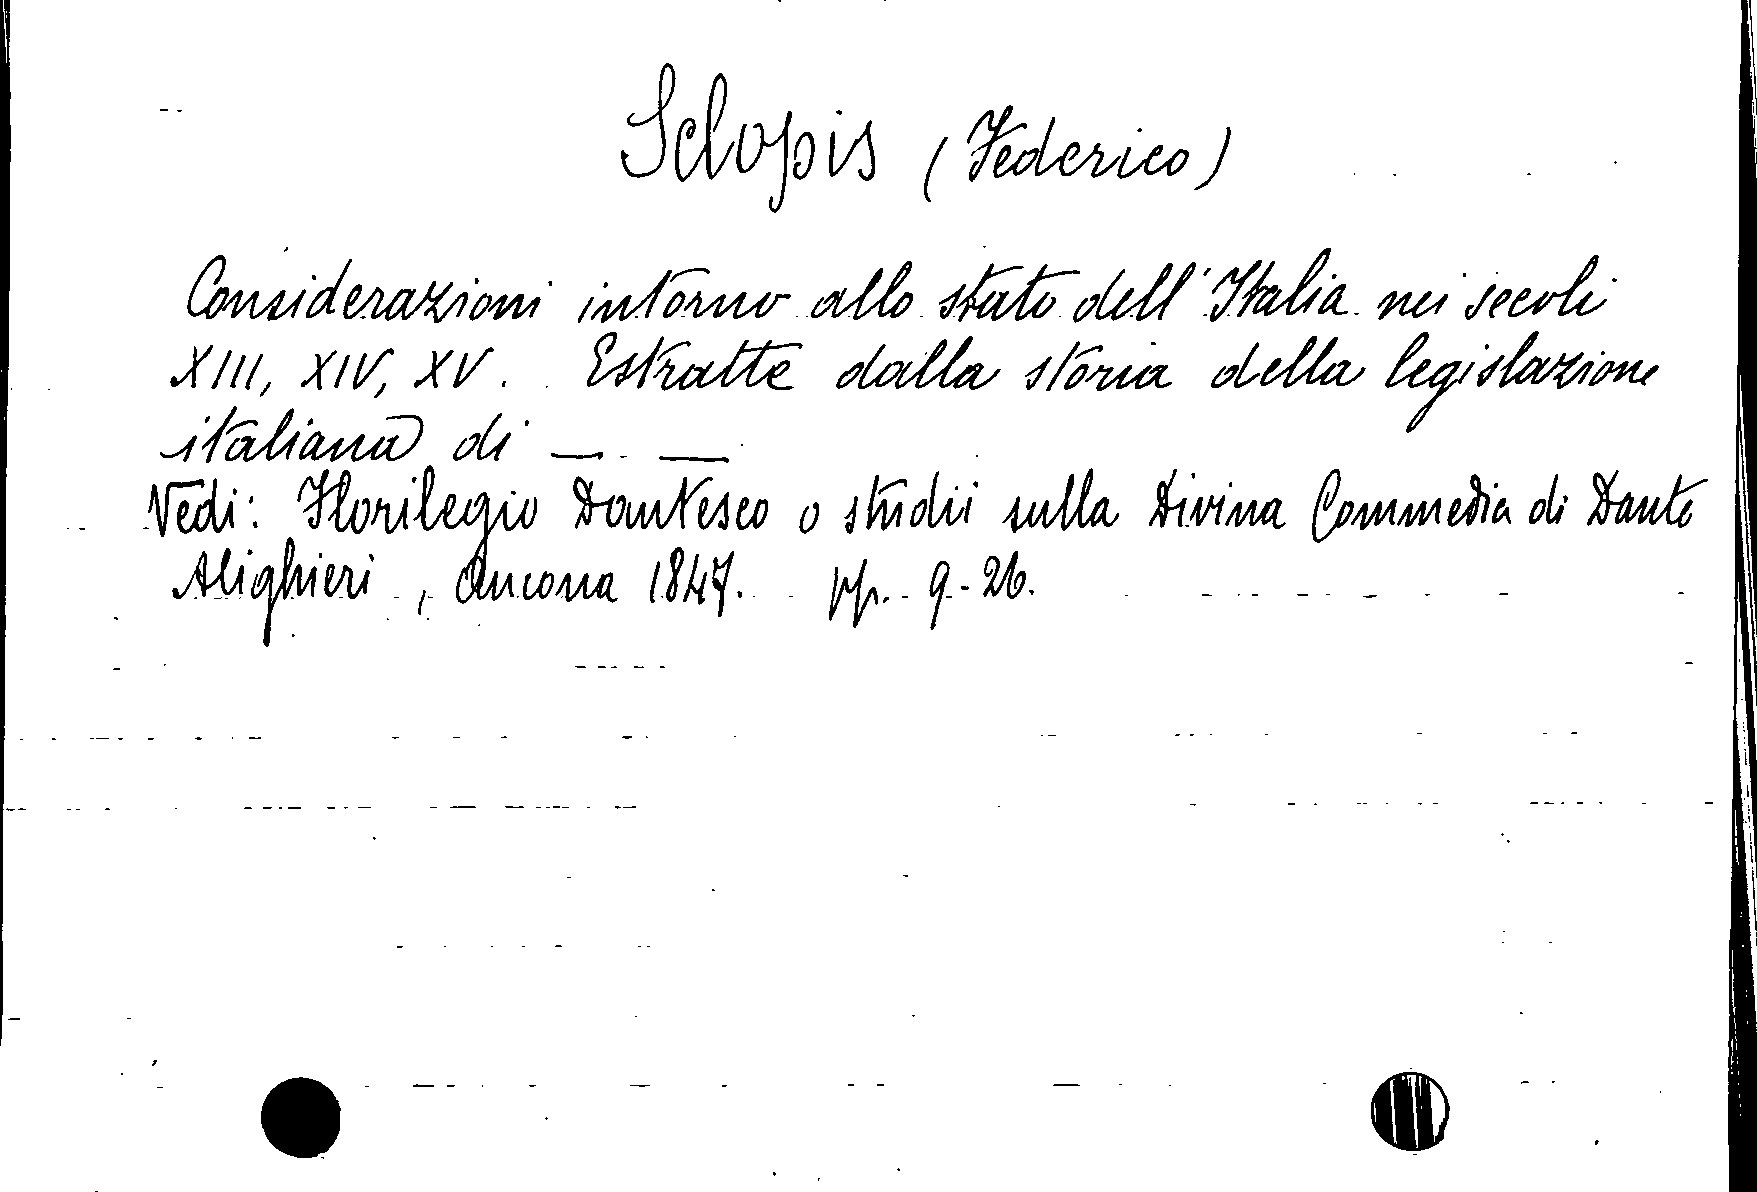 Sclopis (Federico)
Considerazioni intorno allo stato dell'Italia nei secoli
XIII, XIV, XV. Estratte dalla storia della legislazione
italiana di — —
Vedi: Florilegio Dantesco o studii sulla Divina Commedia di Dante
Alighieri, Ancona 1847. pp. 9-26.